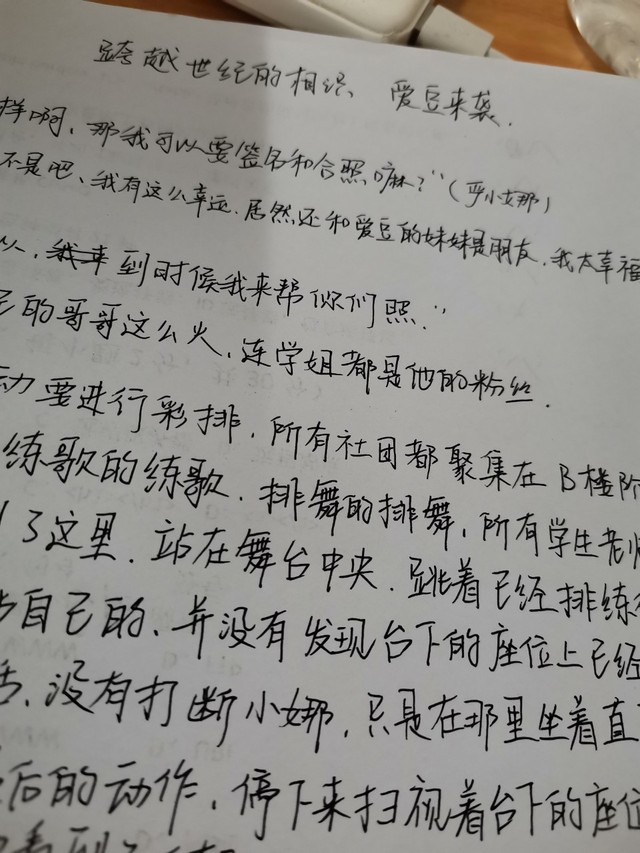 跨越世纪的相识、爱豆来袭.
样啊,那我可以要签名和合照嘛?”(严小娜)
不是吧、我有这么幸运.居然还和爱豆的妹妹是朋友.我太幸福
以,到时候我来帮你们照.”
己的哥哥这么火,连学姐都是他的粉丝.
动要进行彩排.所有社团都聚集在B楼阶
练歌的练歌.排舞的排舞,所有学生老师
了这里.站在舞台中央.跳着已经排练
自己的、并没有发现台下的座位上已经
话,没有打断小娜,只是在那里坐着直
后的动作,停下来扫视着台下的座位
看到